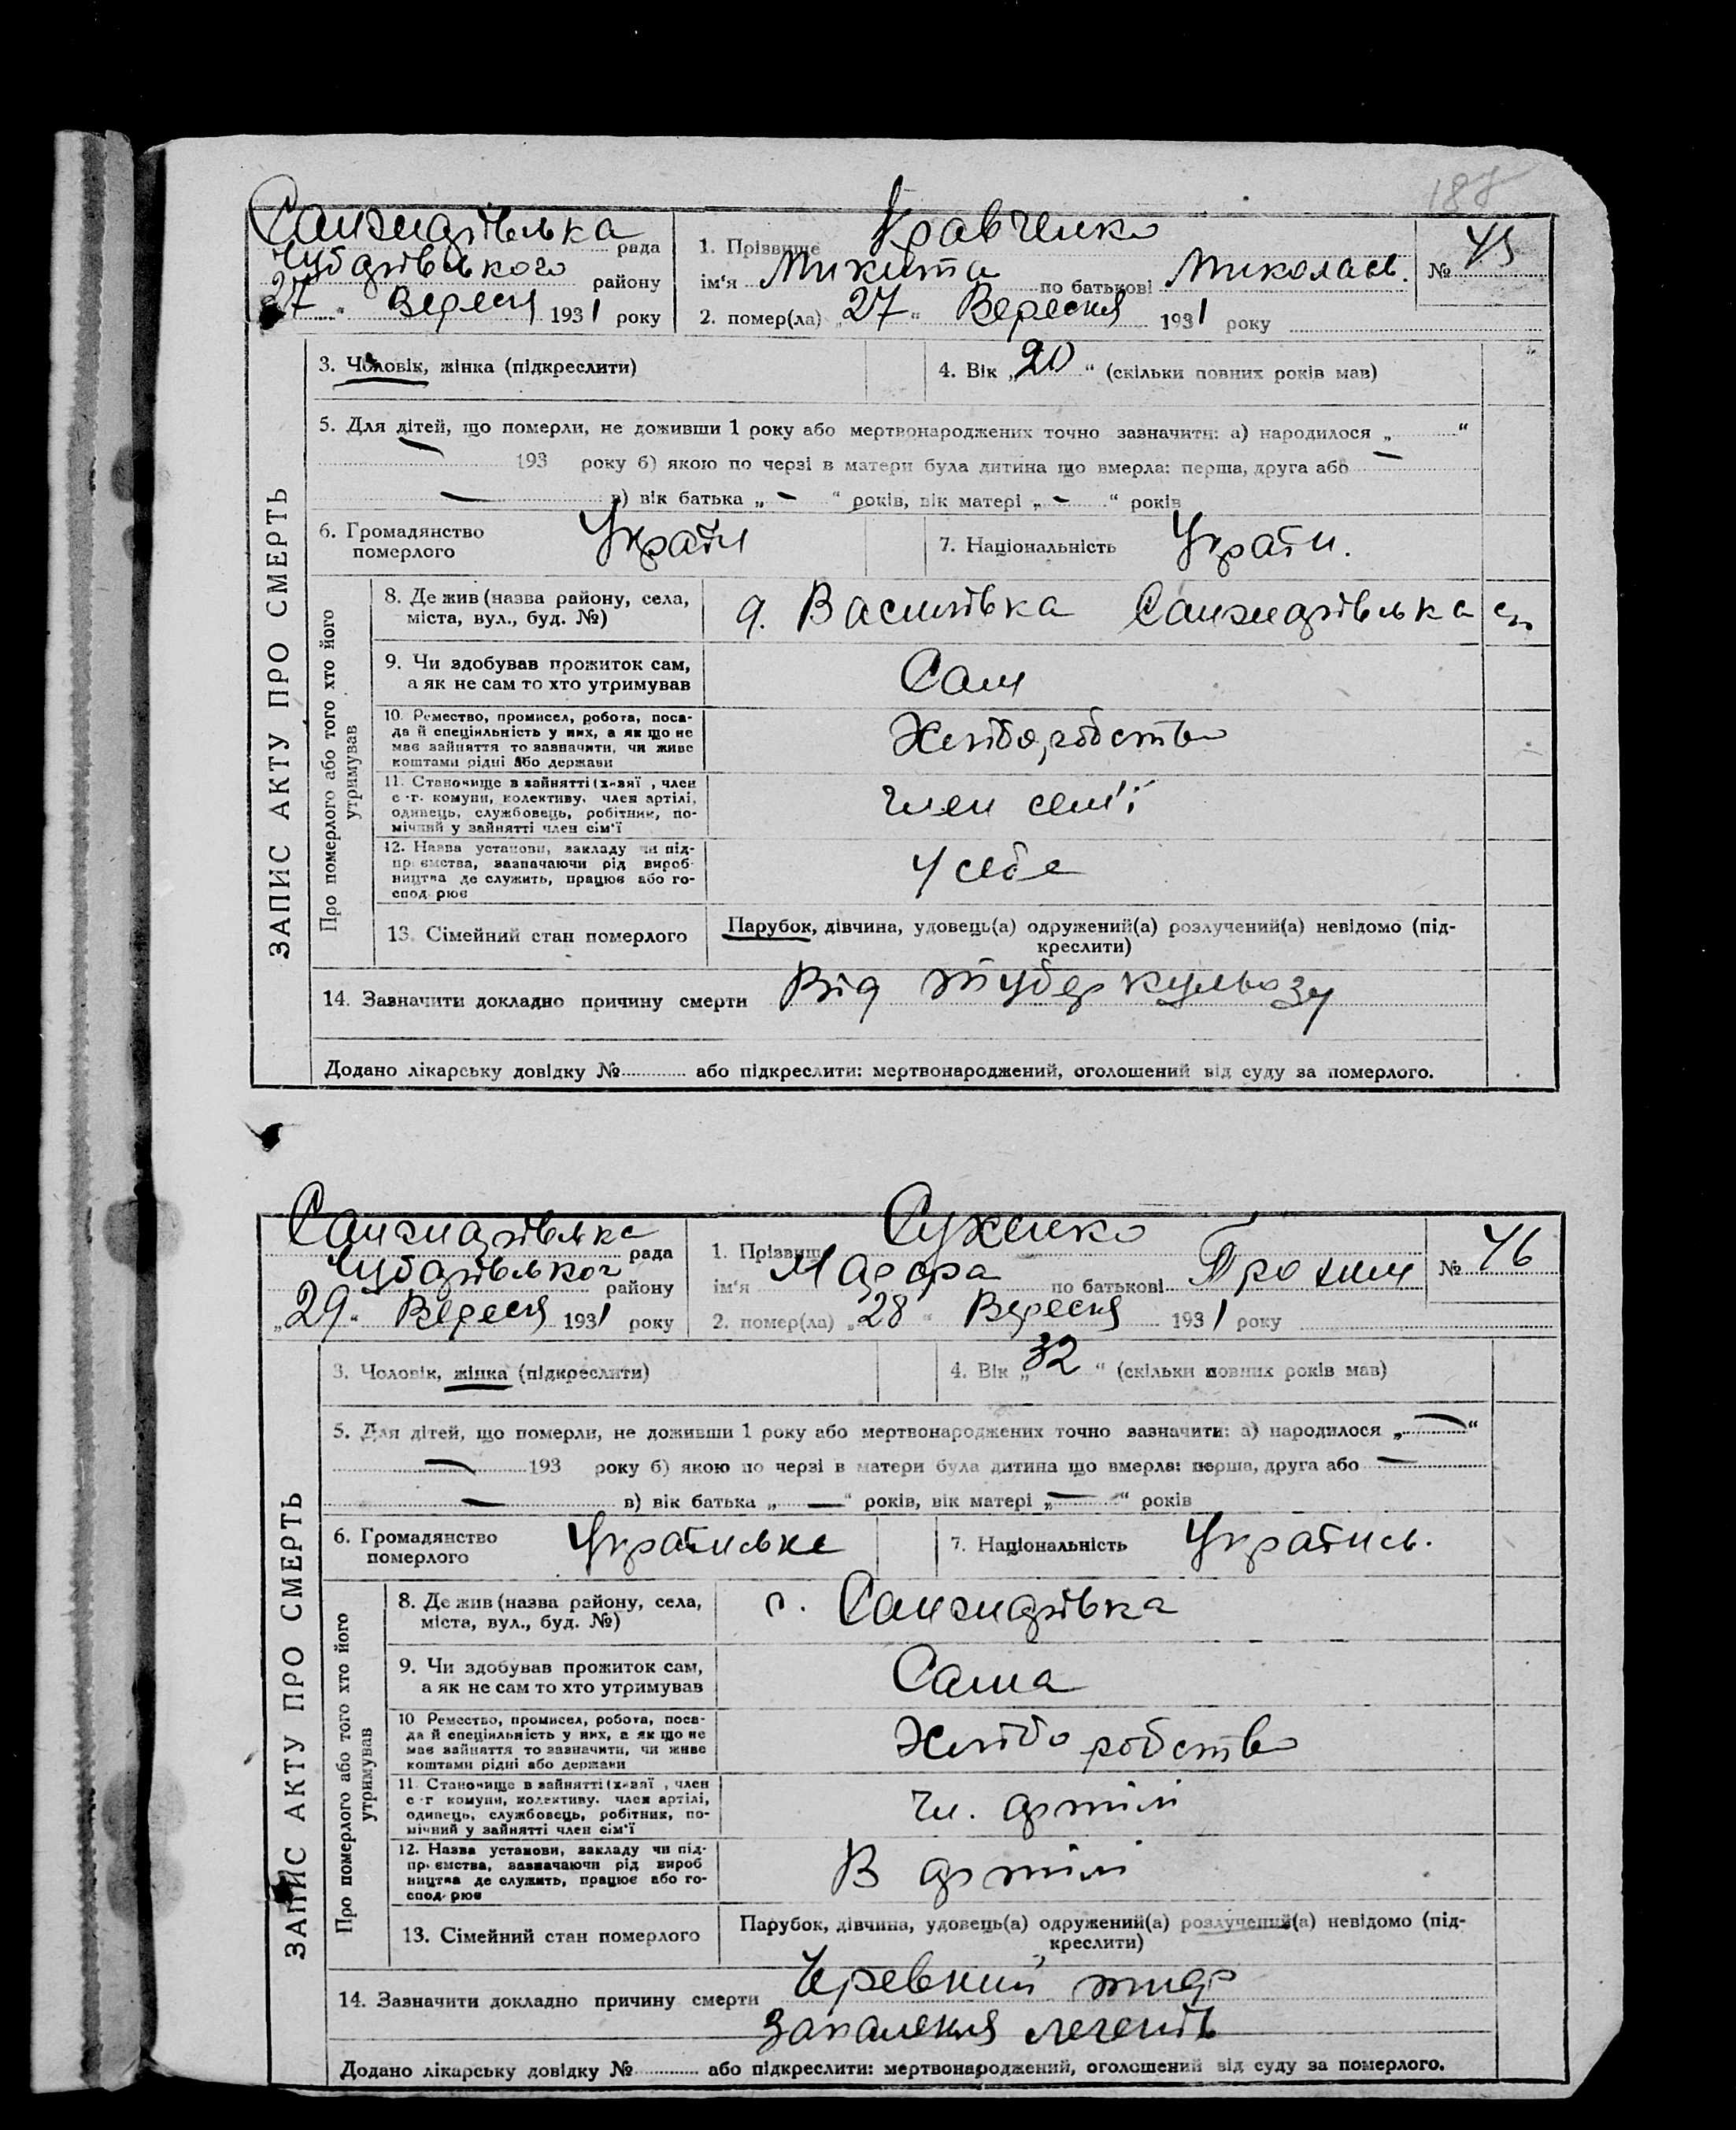 187
Санжарівська рада
Чубарівського району
27 " Вересня 1931 року
1. Прізвище Кравченко
ім'я Микита по батькові Миколаєв.
№ 45
2. помер(ла) „27" Вересня 1931 року
ЗАПИС АКТУ ПРО СМЕРТЬ
3. Чоловік, жінка (підкреслити)
4. Вік „20" (скільки повних років мав)
5. Для дітей, що померли, не доживши 1 року або мертвонароджених точно зазначити: а) народилося „ — "
193 року б) якою по черзі в матери була дитина що вмерла: перша, друга або —
— в) вік батька „ - " років, вік матері „ - " років
6. Громадянство померлого Україн
7. Національність Україн.
Про померлого або того хто його утримував
8. Де жив (назва району, села,
міста, вул., буд. №)
Василівка Санжарівська
9. Чи здобував прожиток сам,
а як не сам то хто утримував
Сам
10. Ремество, промисел, робота, поса-
да й спеціяльність у них, а як що не
має зайняття то зазначити, чи живе
коштами рідні або держави
Хліборобство
11. Становище в зайнятті (х-вяї , член
с.-г. комуни, колективу, член артілі,
одинець, службовець, робітник, по-
мічний у зайнятті член сім'ї
член сем'ї
12. Назва установи, закладу чи під-
пр. ємства, зазначаючи рід вироб-
ництва де служить, працює або го-
спод рює
У себе
13. Сімейний стан померлого
Парубок, дівчина, удовець(а) одружений(а) розлучений(а) невідомо (під-
креслити)
14. Зазначити докладно причину смерти Від туберкульозу
Додано лікарську довідку № або підкреслити: мертвонароджений, оголошений від суду за померлого.
Санжарівська рада
Чубарівськог району
„29" Вересня 1931 року
1. Прізвищ Сухенко
ім'я Мадора по батькові Трохим
№ 46
2. помер(ла) „28" Вересня 1931 року
ЗАПИС АКТУ ПРО СМЕРТЬ
3. Чоловік, жінка (підкреслити)
4. Вік „32" (скільки повних років мав)
5. Для дітей, що померли, не доживши 1 року або мертвонароджених точно зазначити: а) народилося „ — "
— 193 року б) якою по черзі в матери була дитина що вмерла: перша, друга або —
— в) вік батька „ — " років, вік матері „ — " років
6. Громадянство померлого Українське
7. Національність Українсь.
Про померлого або того хто його утримував
8. Де жив (назва району, села,
міста, вул., буд. №)
с. Санжарівка
9. Чи здобував прожиток сам,
а як не сам то хто утримував
Сама
10 Ремество, промисел, робота, поса-
да й спеціяльність у них, а як що не
має зайняття то зазначити, чи живе
коштами рідні або держави
Хліборобство
11. Становище в зайнятті (х-вяї , член
с-г комуни, колективу. член артілі,
одинець, службовець, робітник, по-
мічний у зайнятті член сім'ї
Чл. артілі
12. Назва установи, закладу чи під-
пр. ємства, зазначаючи рід вироб
ництва де служить, працює або го-
спод рює
В артілі
13. Сімейний стан померлого
Парубок, дівчина, удовець(а) одружений(а) розлучений(а) невідомо (під-
креслити)
14. Зазначити докладно причину смерти Черевний тиф
Запалення легенів
Додано лікарську довідку № або підкреслити: мертвонароджений, оголошений від суду за померлого.